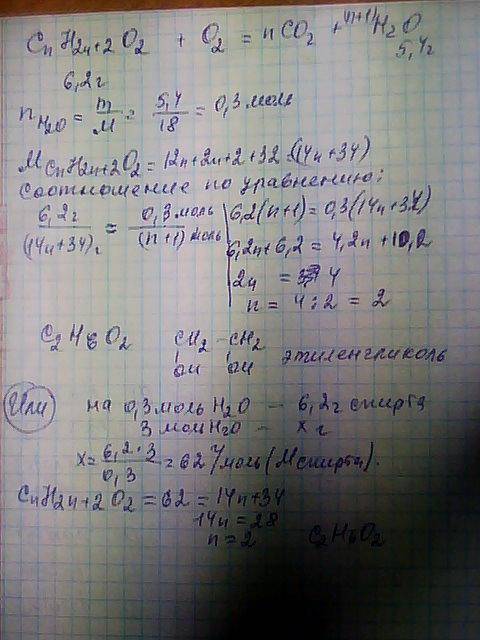 CnH2n+2O2 + O2 = nCO2 + (n+1)H2O
5,4г
6,2г
nH2O = m/M = 5,4/18 = 0,3 моль
MCnH2n+2O2 = 12n+2n+2+32=(14n+34)
Соотношение по уравнению:
6,2г/(14n+34)г = 0,3 моль/(n+1) моль
6,2(n+1)=0,3(14n+34)
6,2n+6,2 = 4,2n+10,2
2n = 4
n = 4:2 = 2
C2H6O2 CH2-CH2
OH OH этиленгликоль
Или на 0,3 моль H2O - 6,2г спирта
3 моль H2O - x г
x = 6,2·3/0,3 = 62 г/моль (M спирта).
CnH2n+2O2 = 62 = 14n+34
14n = 28
n = 2 C2H6O2